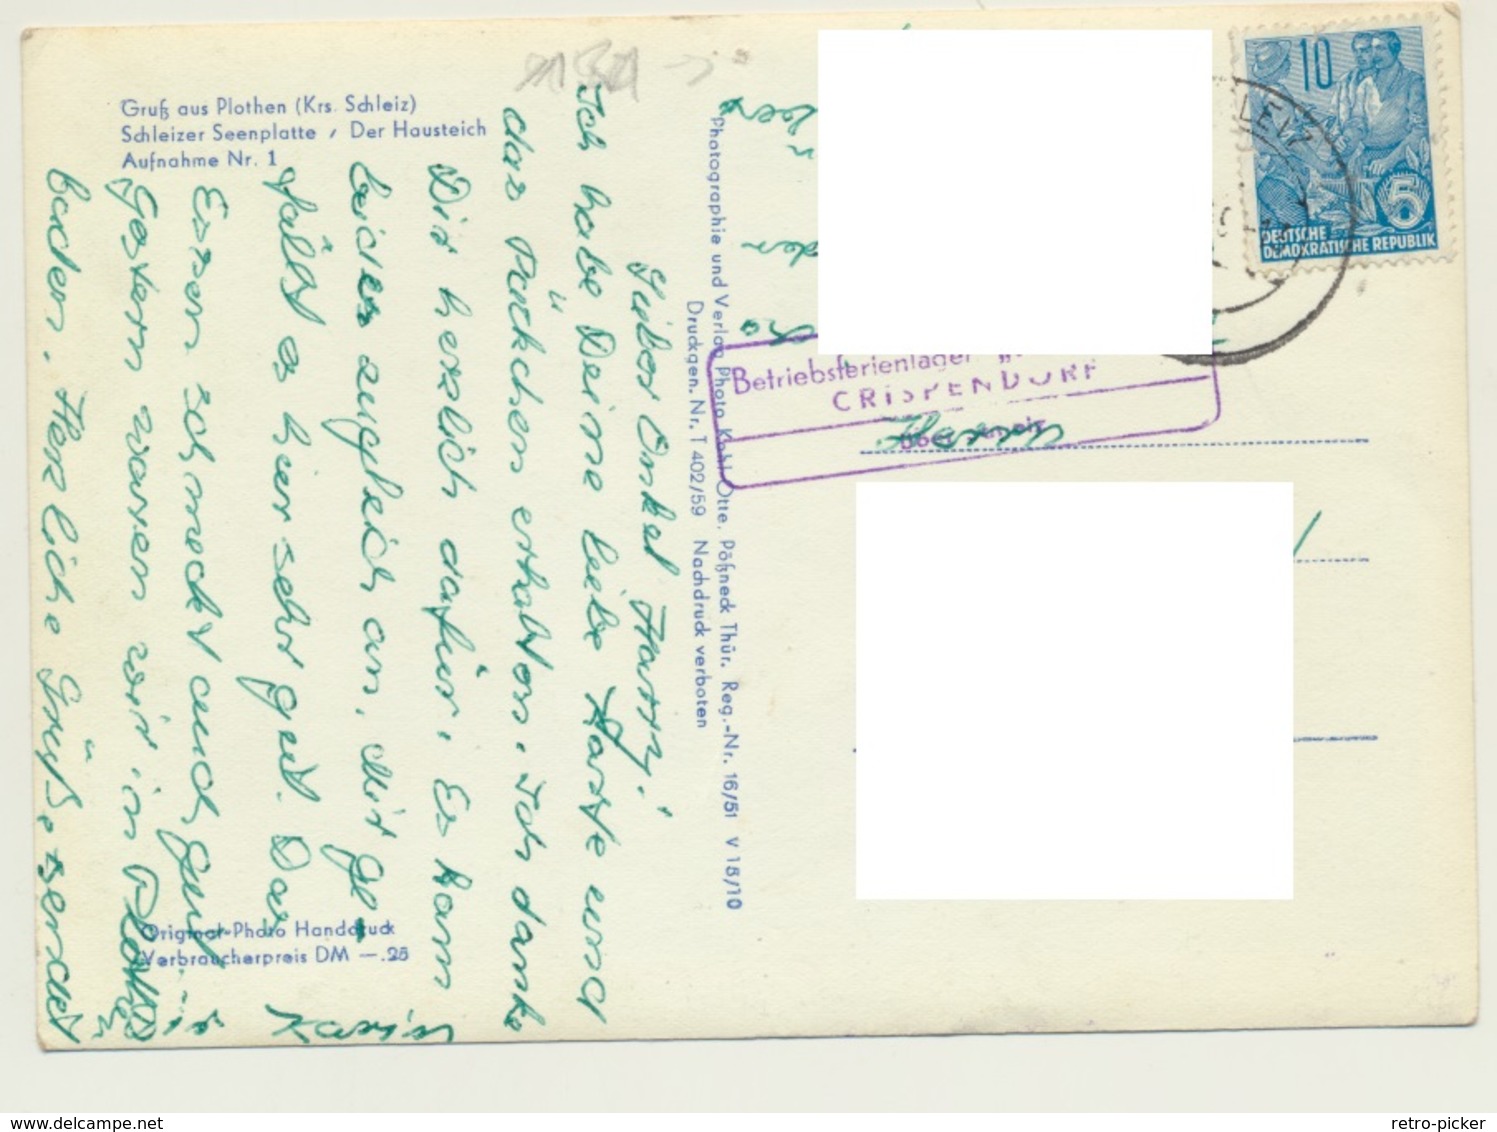 Gruß aus Plothen (Krs. Schleiz)
Schleizer Seenplatte / Der Hausteich
Aufnahme Nr. 1
Lieber Onkel Harry!
Ich habe Deine liebe Karte und
das Päckchen erhalten. Ich danke
Dir herzlich dafür. Es kam
zugleich an. Mir ge-
fällt es hier sehr gut. Das
Essen schmeckt auch gut.
Gestern waren wir in
baden. Herzliche Grüße sendet
Karin
Original-Photo Handdruck
Verbraucherpreis DM —.25
Photographie und Verlag Photo Kohl-Otte, Pößneck Thür. Reg.-Nr. 16/51 V 15/10
Druckgen. Nr. T 402/59 Nachdruck verboten
Betriebsferienlager
CRISPENDORF
über
den
10
5
DEUTSCHE
DEMOKRATISCHE REPUBLIK
delcampe.net
retro-picker